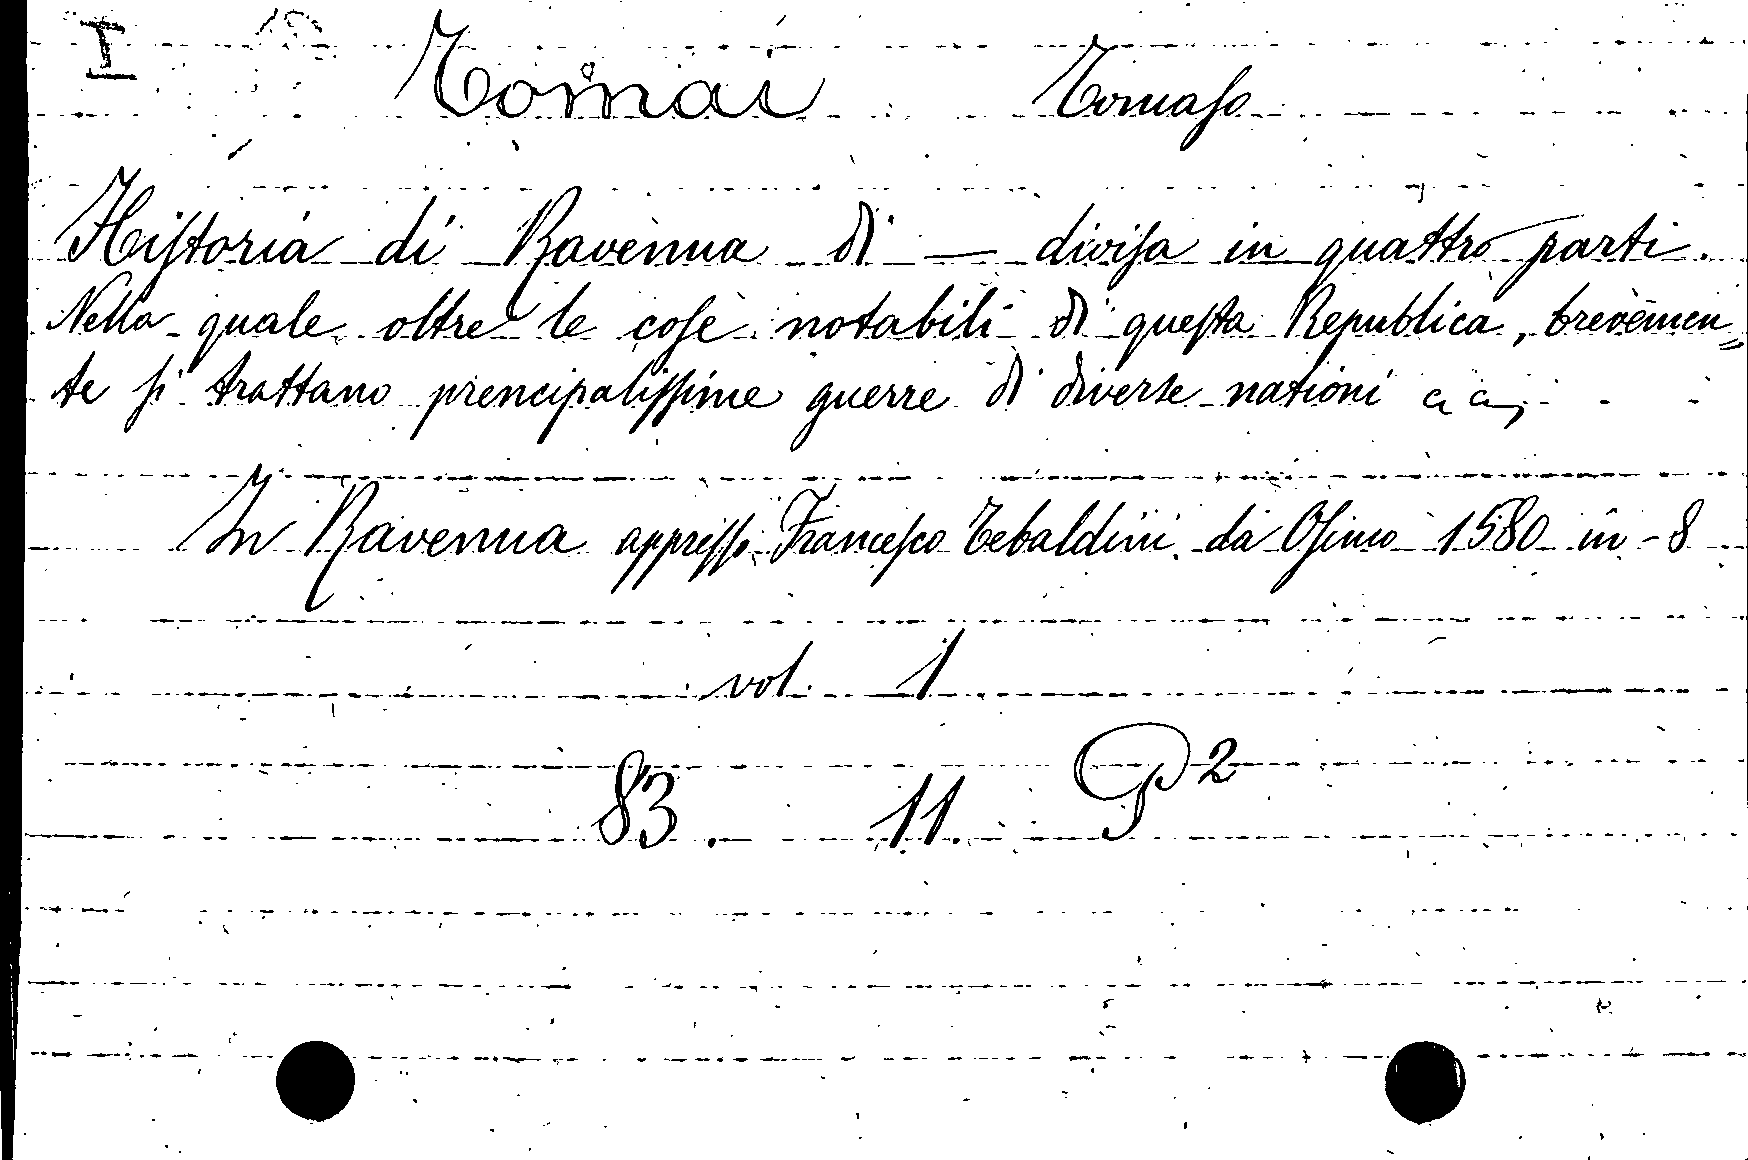 I
Tomai Tomaſo
Hiſtoria di Ravenna di — diviſa in quattro parti.
Nella quale oltre le coſe notabili di queſta Republica, brevemen„
te ſi trattano prencipaliſſime guerre di diverse nationi
In Ravenna appreſſo Franceſco Tebaldini da Oſimo 1580 in-8
vol. 1
83. 11. P²